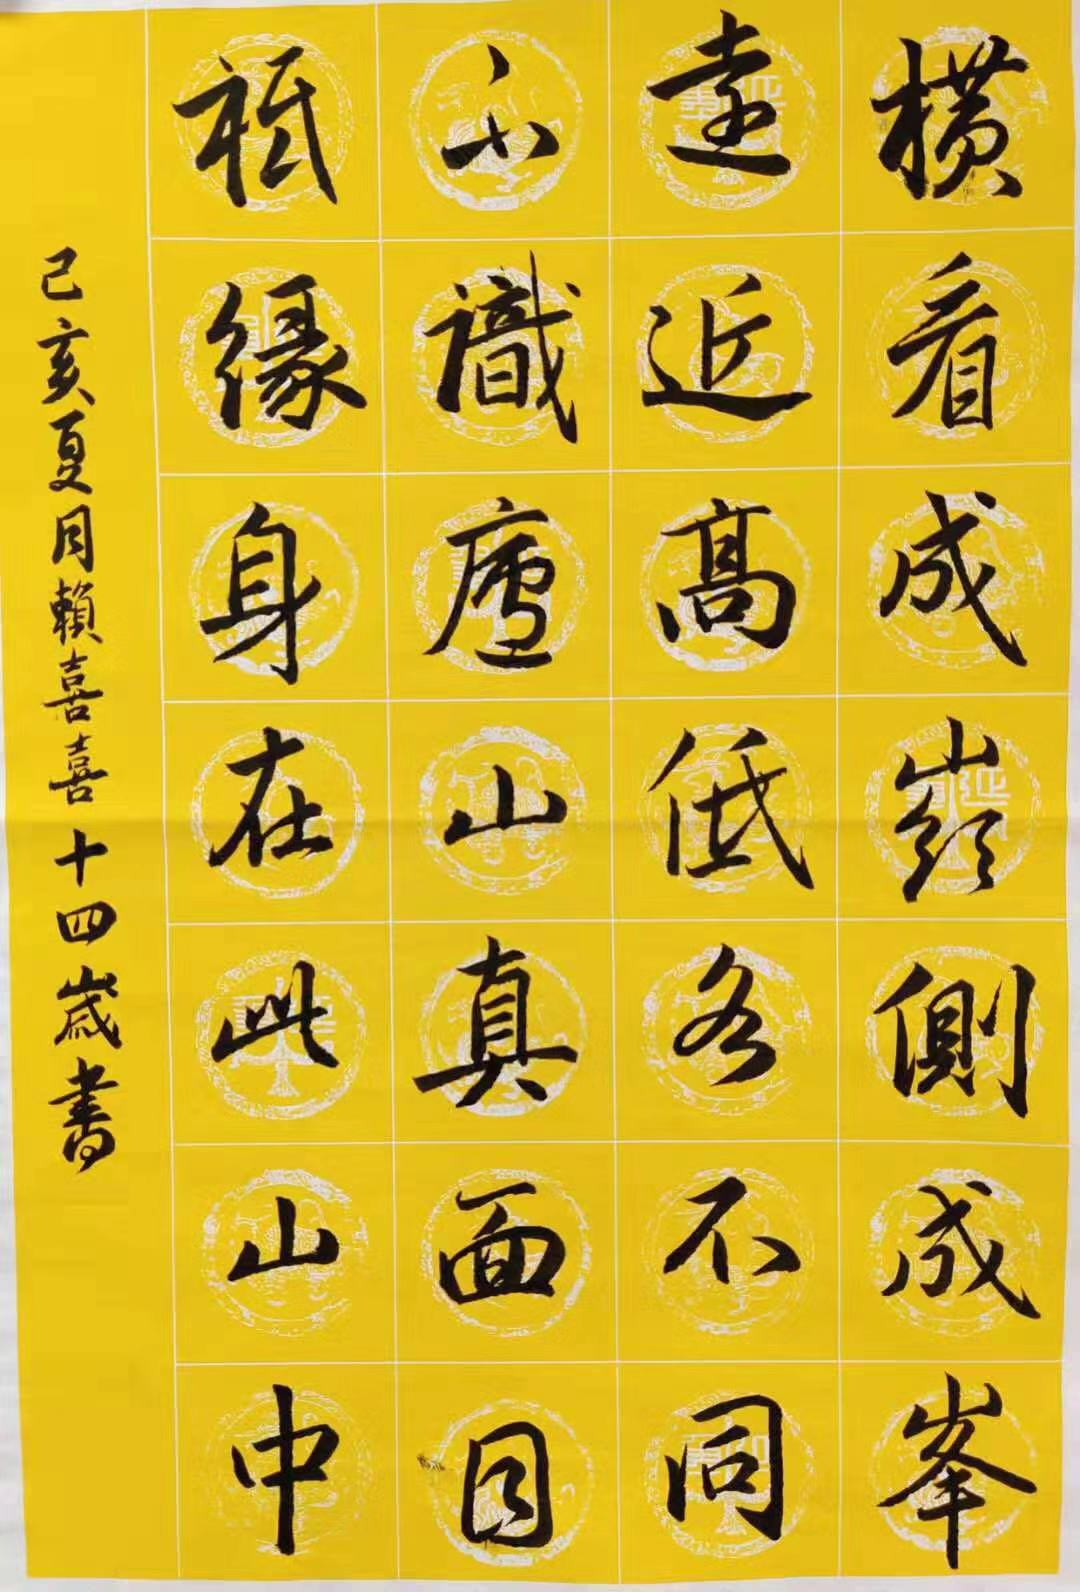 橫看成嶺側成峯
遠近高低各不同
不識廬山真面目
祇緣身在此山中
己亥夏月賴喜喜十四歲書